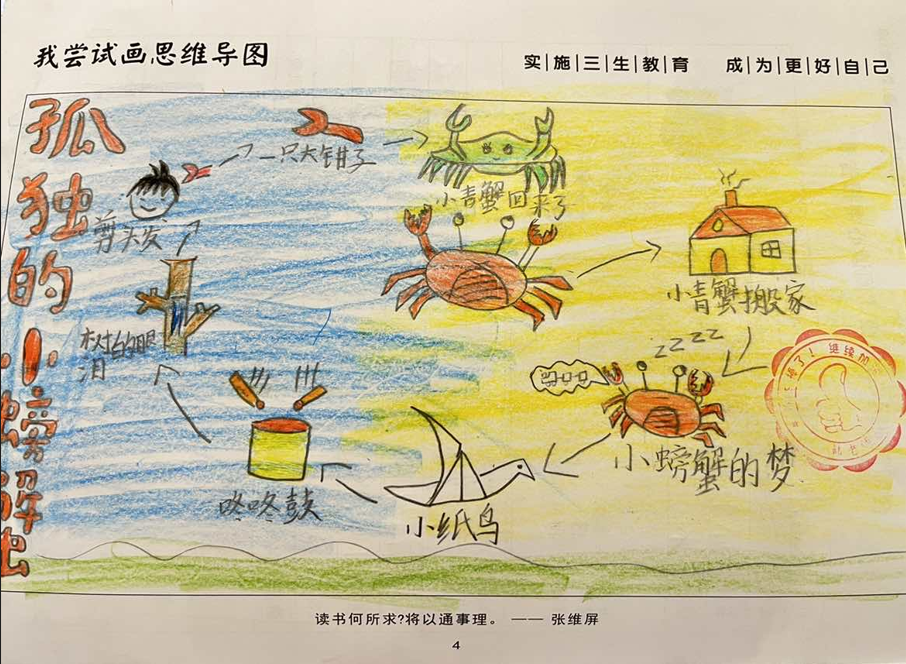 我尝试画思维导图
实|施|三|生|教|育 成|为|更|好|自|己
孤独的小螃蟹
一只大钳子
小青蟹回来了
剪头发
小青蟹搬家
树的眼泪
zzzz
小螃蟹的梦
咚咚鼓
小纸鸟
继续加
读书何所求?将以通事理。 —— 张维屏
4